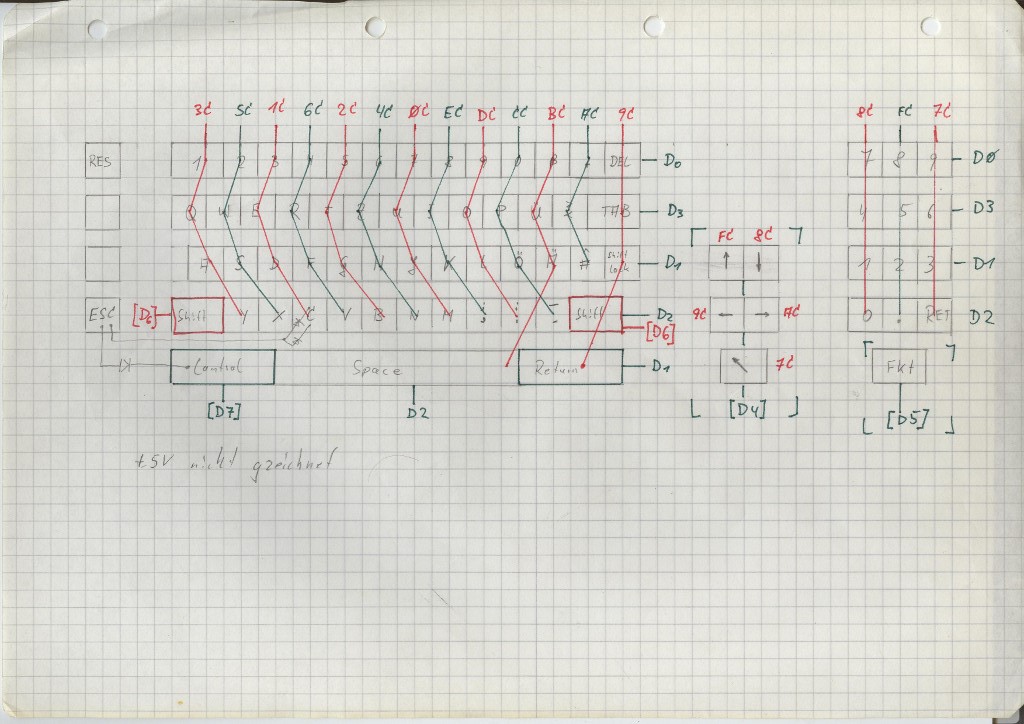 3C 5C 1C 6C 2C 4C 0C EC DC CC BC AC 9C 8C FC 7C
RES 1 2 3 4 5 6 7 8 9 0 DEL D0 7 8 9 D0
Q W E R T Z U I O P Ü TAB D3 4 5 6 D3
FC 8C
A S D F G H J K L Ö Ä # Shift Lock D1 ↑ ↓ 1 2 3 D1
ESC [D6] Shift Y X C V B N M ; : - Shift D2 9C ← → AC 0 . RET D2
[D6]
Control Space Return D1 7C Fkt
[D7] D2 [D4] [D5]
+5V nicht gzeichnet